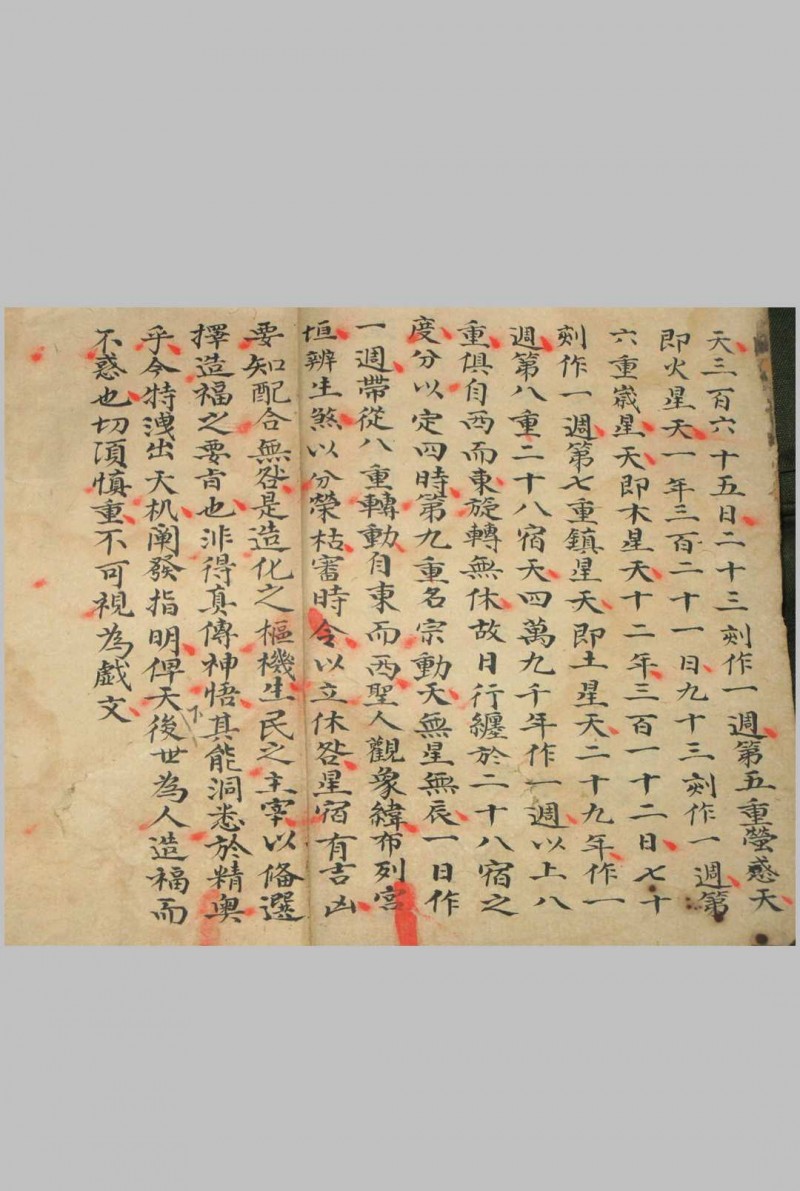 天三百六十五日二十三刻作一週第五重螢惑天
即火星天一年三百二十一日九十三刻作一週第
六重嵗星天即木星天十二年三百一十二日七十
刻作一週第七重鎮星天即土星天二十九年作一
週第八重二十八宿天四萬九千年作一週以上八
重俱自西而東旋轉無休故日行纏於二十八宿之
度分以定四時第九重名宗動天無星無辰一日作
一週帶從八重轉動自東而西聖人觀象緯布列宮
垣辨生煞以分榮枯審時令以立休咎星宿有吉凶
要知配合無咎是造化之樞機生民之主宰以俻選
擇造福之要㫖也非得真傳神悟其下能洞悉於精奧
乎今特洩出天机阐發指明俾天後世為人造福而
不惑也切須慎重不可視為戯文